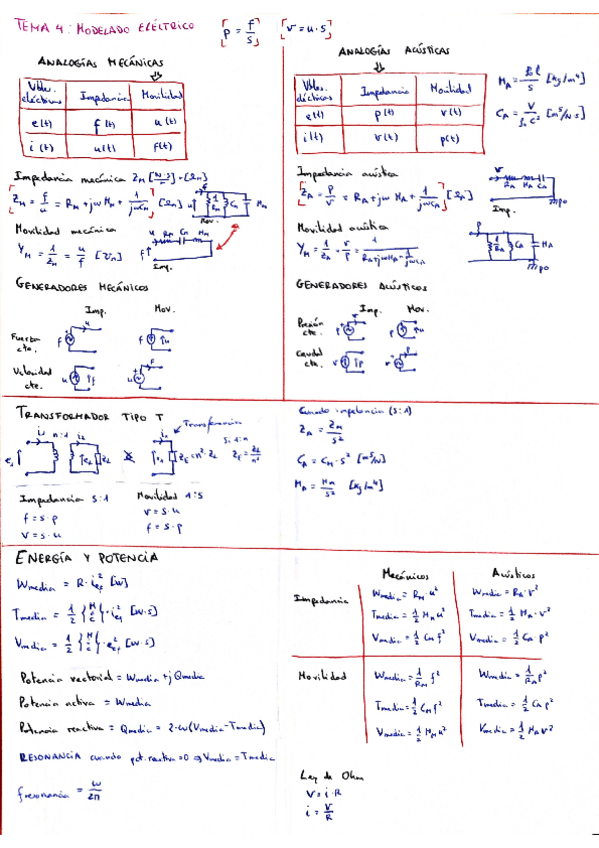 TEMA 4: MODELADO ELÉCTRICO [p = f/s] [v = u·s]
ANALOGÍAS MECÁNICAS
Vbles. eléctricas Impedancia Movilidad
e(t) f(t) u(t)
i(t) u(t) f(t)
Impedancia mecánica Z_M [N·s/m] = [Ω_M]
Z_M = f/u = R_M + jω M_M + 1/(jωC_M) [Ω_M]
Mov.
Movilidad mecánica
Y_M = 1/Z_M = u/f
Imp.
GENERADORES MECÁNICOS
Imp. Mov.
Fuerza cte.
Velocidad cte.
ANALOGÍAS ACÚSTICAS
Vbles. eléctricas Impedancia Movilidad
e(t) p(t) v(t)
i(t) v(t) p(t)
[kg/m⁴]
[m⁵/N·s]
Impedancia acústica
Z_A = p/v = R_A + jω M_A + 1/(jωC_A) [Ω_A]
R_A M_A C_A
Imp.
Movilidad acústica
Y_M = 1/Z_A = v/p = 1/(R_A + jωM_A + 1/(jωC_A))
GENERADORES ACÚSTICOS
Imp. Mov.
Presión cte.
Caudal cte.
TRANSFORMADOR TIPO T
i₁ n:1 i₂
Transferencia
S:1:n
Z_e = n²·Z_L
Impedancia S:1
f = S·p
v = S·u
Movilidad 1:S
v = S·u
f = S·p
Cuando impedancia (S:1)
Z_A = Z_M/S²
C_A = C_M·S² [m⁵/N]
M_A = M_M/S² [kg/m⁴]
ENERGÍA Y POTENCIA
Wmedia = R·i²ef [W]
Tmedia = 1/2 {M/C}·i²ef [W·s]
Vmedia = 1/2 {M/C}·e²ef [W·s]
Potencia vectorial = Wmedia + j Qmedia
Potencia activa = Wmedia
Potencia reactiva = Qmedia = 2·ω(Vmedia - Tmedia)
RESONANCIA cuando pot. reactiva = 0 ⇒ Vmedia = Tmedia
fresonancia = ω/2π
Mecánicos Acústicos
Impedancia
Wmedia = R_M u² Wmedia = R_A·v²
Tmedia = 1/2 M_M u² Tmedia = 1/2 M_A·v²
Vmedia = 1/2 C_M f² Vmedia = 1/2 C_A p²
Movilidad
Wmedia = 1/R_M f² Wmedia = 1/R_A p²
Tmedia = 1/2 C_M f² Tmedia = 1/2 C_A p²
Vmedia = 1/2 M_M u² Vmedia = 1/2 M_A v²
Ley de Ohm
V = i·R
i = V/R